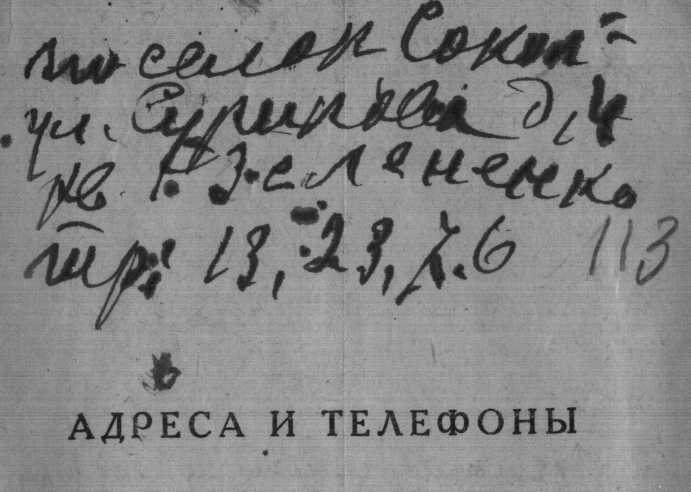 поселок Сокол-
ул. Сурикова д. 4
кв 1. Зеляненко
тр: 13, 23, 7.6 113
АДРЕСА И ТЕЛЕФОНЫ